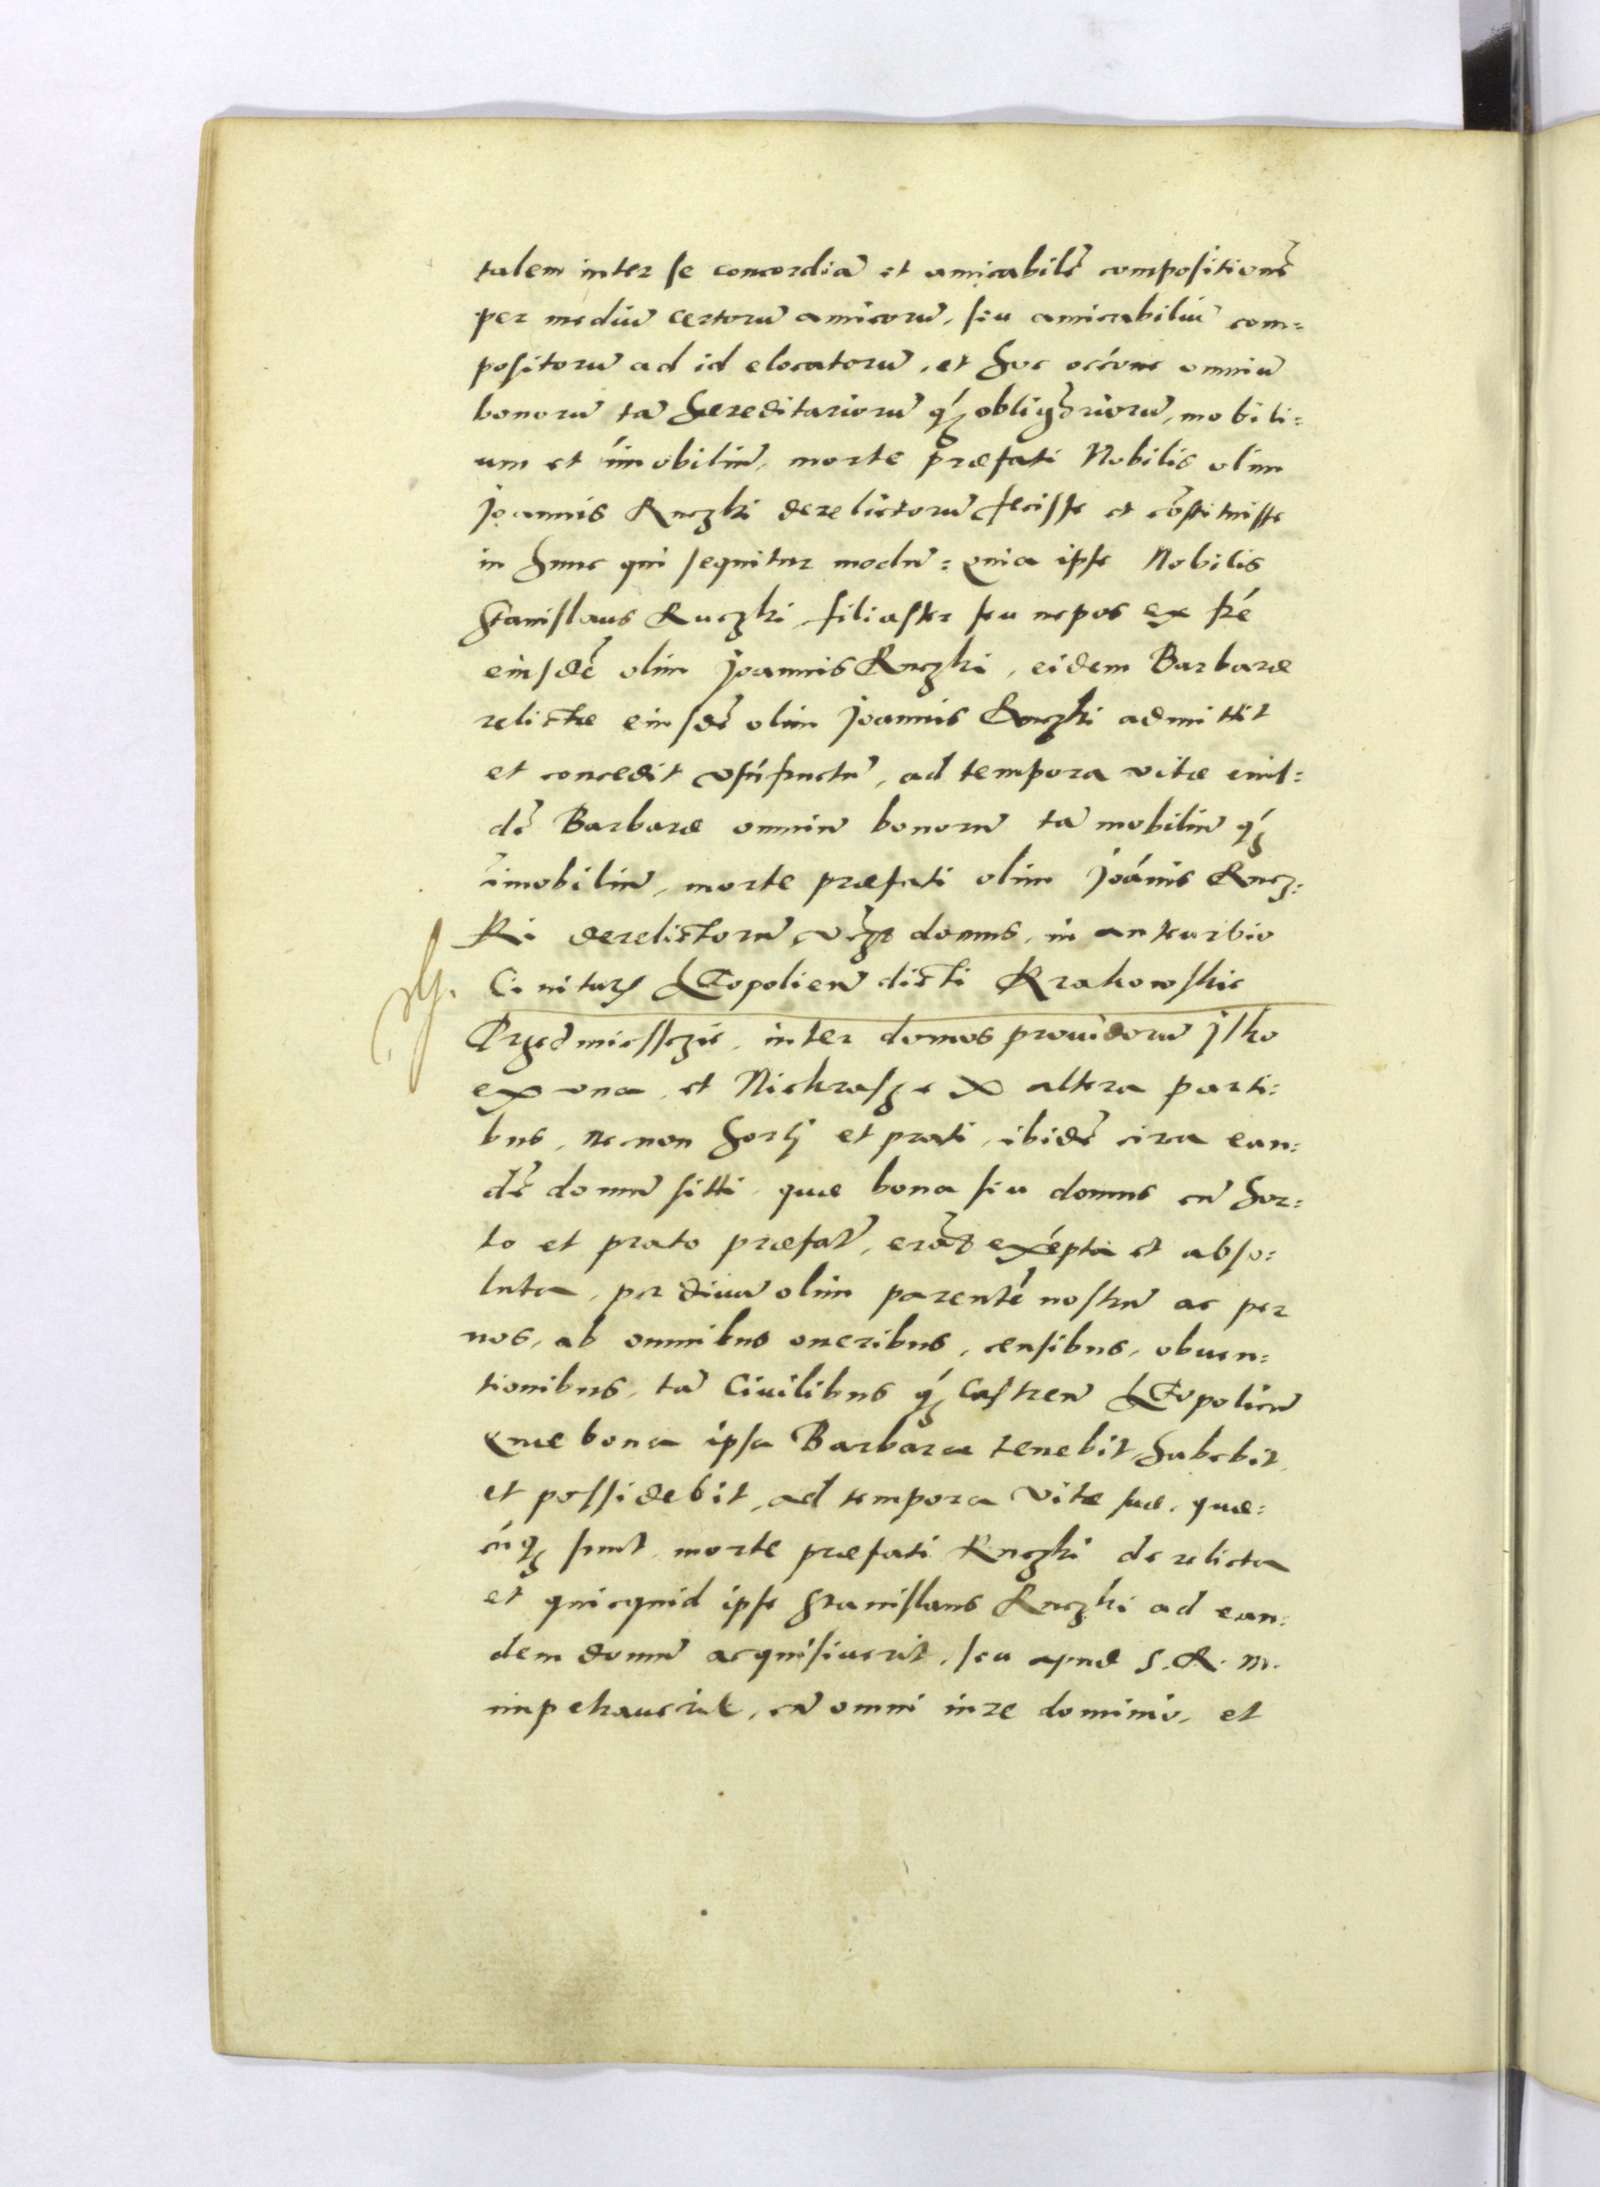 talem inter se concordiã et amicabilẽ compositionẽ
per mediũ certorũ amicorũ, seu amicabiliũ com=
positorũ ad id elocatorũ, et hoc occõne omniũ
bonorũ tã hereditariorũ q́ȝ obligãriorũ, mobili=
um et im̃obiliũ, morte præfati Nobilis olim
Joannis Ruczki derelictorũ fecisse et cõstituisse
in hunc qui sequitur modũ: Quia ipse Nobilis
Stanislaus Ruczki filiaster seu nepos ex fr̃e
eiusdẽ olim Joannis Ruczki, eidem Barbaræ
relictæ eiusdẽ olim Joannis Ruczki admittit
et concedit vsũfructũ, ad tempora vitæ eius=
dẽ Barbaræ omniũ bonorũ tã mobiliũ q́ȝ
im̃obiliũ, morte præfati olim Joãnis Rucz=
ki derelictorũ, vcȝ domus, in anteurbio
Ciuitatis Leopolieñ dicti Krakowskie
Przedmiessczie, inter domos prouidorũ Jsko
ex vna, et Niekrasze ex altera parti=
bus, necnon horti et prati, ibidẽ circa ean=
dẽ domũ sitti, quæ bona seu domus cũ hor=
to et prato præfat̃, erãt exẽpta et abso=
luta, per diuũ olim parentẽ nostrũ ac per
nos, ab omnibus oneribus, censibus, obuen=
tionibus, tã Ciuilibus q́ȝ Castreñ Leopolieñ
Quæ bona ipsa Barbara tenebit, habebit,
et possidebit, ad tempora vitæ suæ, quæ=
cũqȝ sunt, morte præfati Ruczki derelicta
et quicquid ipse Stanislaus Ruczki ad ean=
dem domũ acquisiuerit, seu apud S. R. M.
impetrauerit, cũ omni iure dominio, et